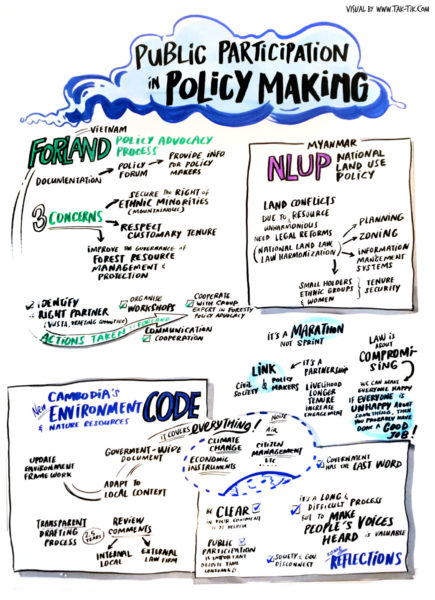 VISUAL BY WWW.TAK-TIK.COM
PUBLIC PARTICIPATION
IN POLICY MAKING
VIETNAM
FORLAND
POLICY ADVOCACY
PROCESS
DOCUMENTATION
POLICY
FORUM
PROVIDE INFO
FOR POLICY
MAKERS
3 CONCERNS
SECURE THE RIGHT OF
ETHNIC MINORITIES
(MOUNTAINOUS)
RESPECT
CUSTOMARY TENURE
IMPROVE THE GOVERNANCE OF
FOREST RESOURCE
MANAGEMENT &
PROTECTION
IDENTIFY
RIGHT PARTNER
(VUSTA, DRAFTING COMMITTEE)
ORGANISE
WORKSHOPS
COOPERATE
WITH GROUP
EXPERT IN FORESTRY
POLICY ADVOCACY
ACTIONS TAKEN BY FORLAND
COMMUNICATION
COOPERATION
MYANMAR
NLUP
NATIONAL
LAND USE
POLICY
LAND CONFLICTS
DUE TO RESOURCE
UNHARMONIOUS
NEED LEGAL REFORMS
(NATIONAL LAND LAW,
LAW HARMONIZATION)
PLANNING
ZONING
INFORMATION
MANGEMENT
SYSTEMS
SMALL HOLDERS
ETHNIC GROUPS
& WOMEN
TENURE
SECURITY
IT'S A MARATHON
NOT SPRINT
LINK
CIVIL
SOCIETY &
POLICY
MAKERS
IT'S A
PARTNERSHIP
LIVELIHOOD
LONGER
TENURE
INCREASE
ENGAGEMENT
LAW IS
ABOUT
COMPROMI-
SING
WE CAN MAKE
EVERYONE HAPPY
IF EVERYONE IS
UNHAPPY ABOUT
SOMETHING, THEN
YOU PROBABLY HAVE
DONE A GOOD
JOB!
CAMBODIA'S
NEW ENVIRONMENT
& NATURE RESOURCES
CODE
IT COVERS EVERYTHING!
NOISE
AIR
CLIMATE
CHANGE
CITIZEN
MANAGEMENT
ETC
ECONOMIC
INSTRUMENTS
UPDATE
ENVIRONMENT
FRAMEWORK
GOVERMENT-WIDE
DOCUMENT
ADAPT TO
LOCAL CONTEXT
TRANSPARENT
DRAFTING
PROCESS
2,5
YEARS
REVIEW
COMMENTS
INTERNAL
LOCAL
EXTERNAL
LAW FIRM
GOVERNMENT
HAS THE LAST WORD
BE CLEAR
IN YOUR COMMENT
TO BE HELPFUL
IT'S A LONG &
DIFFICULT PROCESS
BUT TO MAKE
PEOPLE'S VOICES
HEARD IS VALUABLE
PUBLIC
PARTICIPATION
IS IMPORTANT
DESPITE TIME
CONSUMING
SOCIETY & GOV.
DISCONNECT
SOME
REFLECTIONS